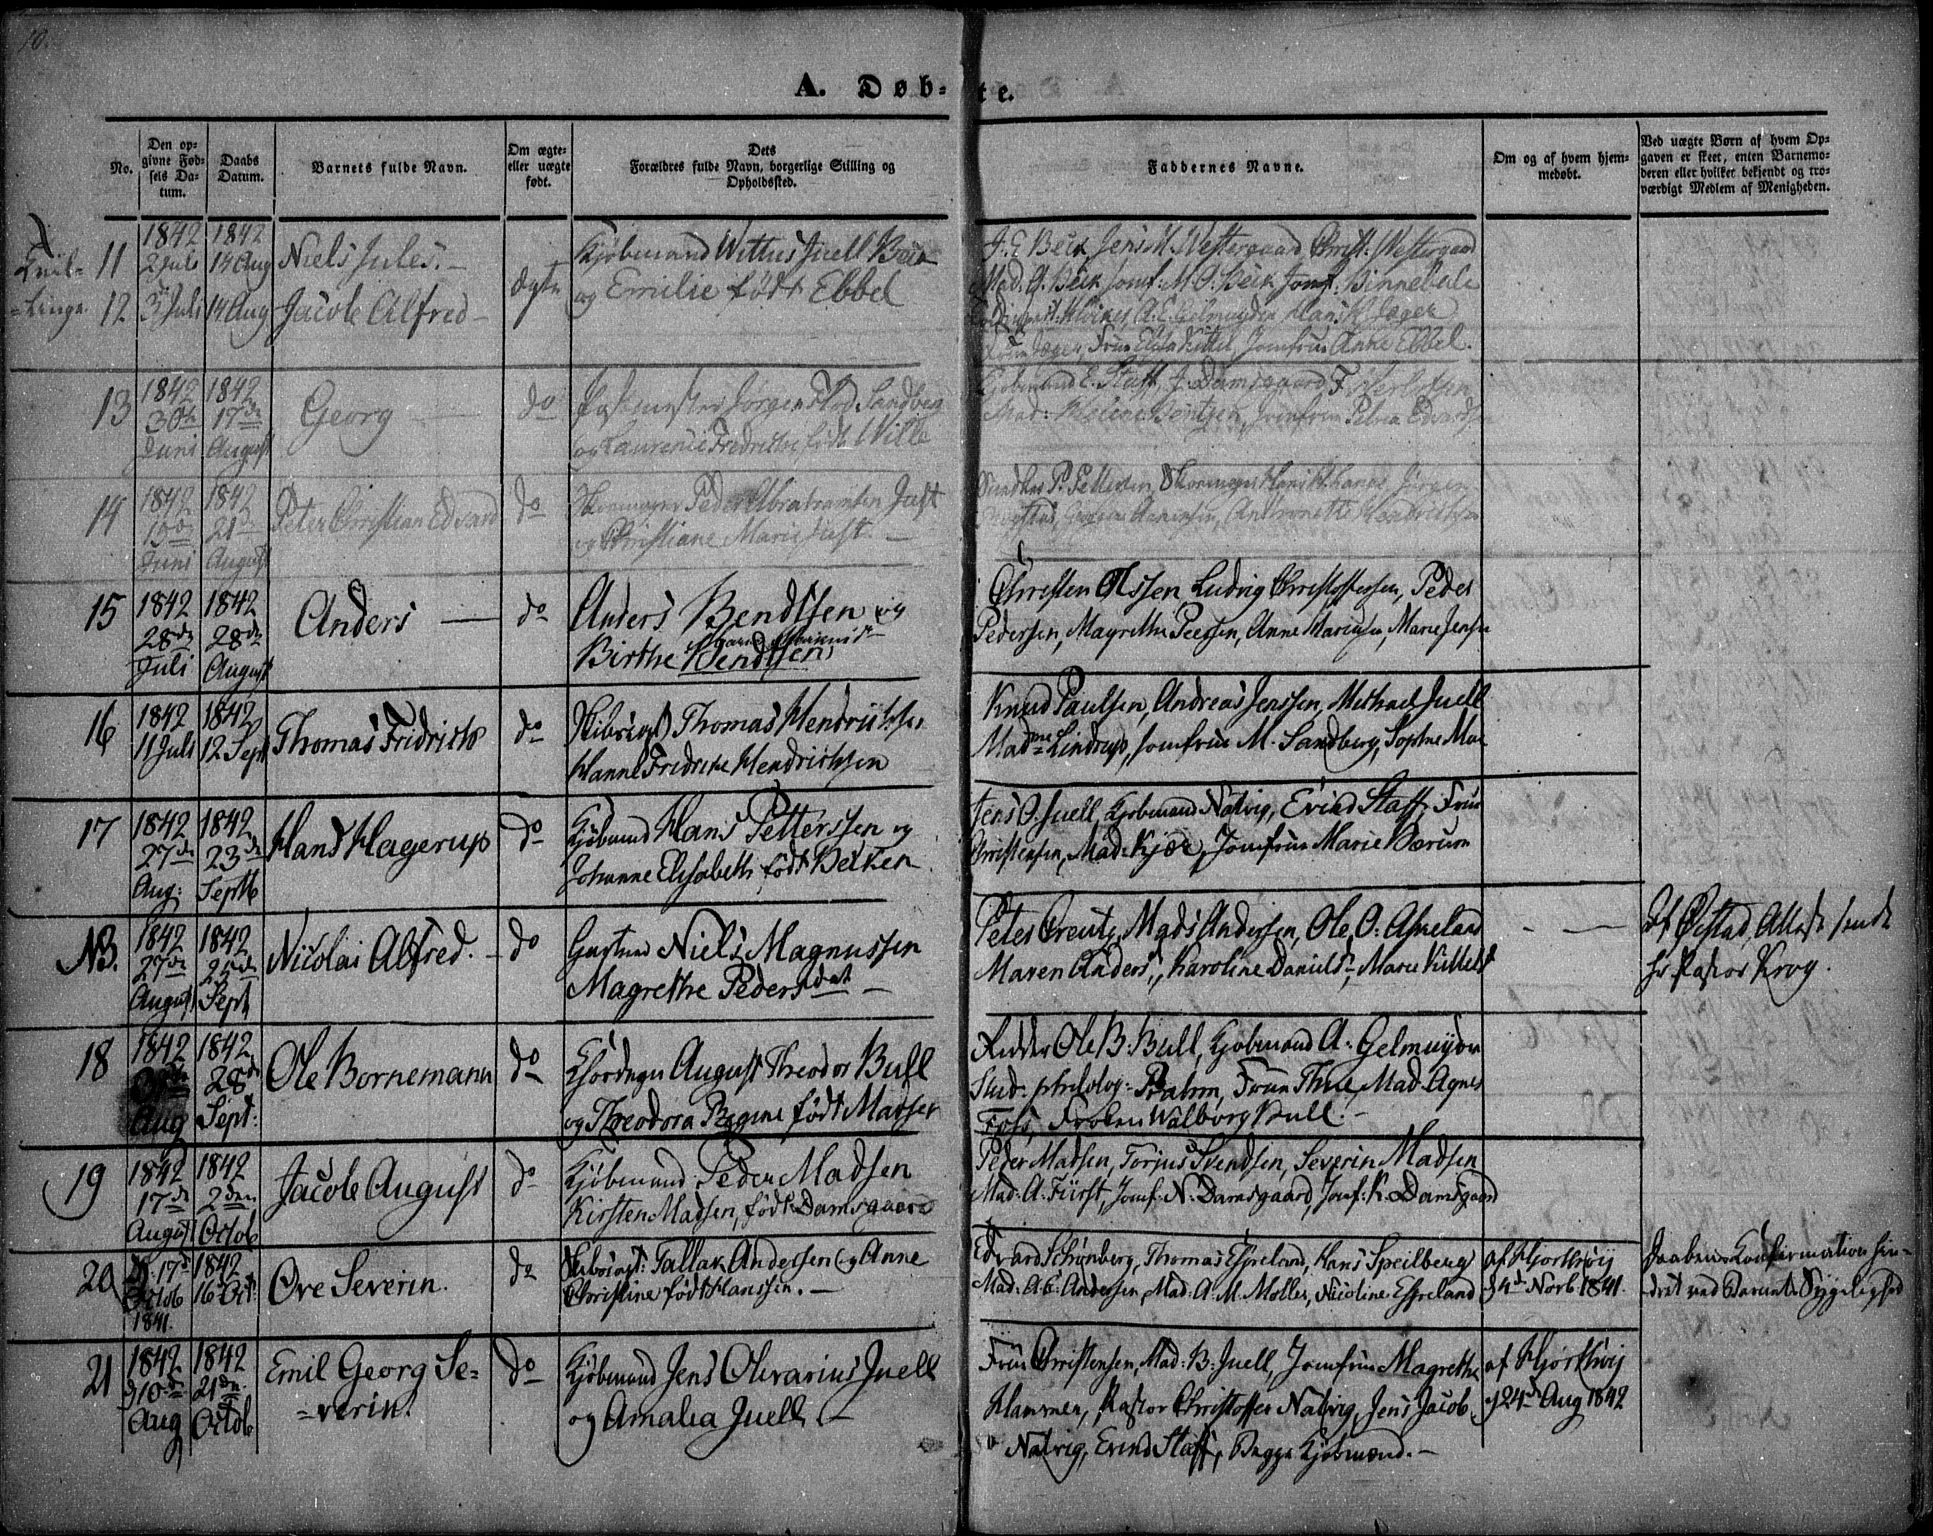 10.
A. Døb-
te.
No.
Den op-
givne Fød-
sels Da-
tum.
Daabs
Datum.
Barnets fulde Navn.
Om ægte-
eller uægte
født.
Dets
Forældres fulde Navn, borgerlige Stilling og
Opholdssted.
Faddernes Navne.
Om og af hvem hjem-
medøbt.
Ved uægte Børn af hvem Op-
gaven er skeet, enten Barnemo-
deren eller hvilket bekjendt og tro-
værdigt Medlem af Menigheden.
11
1842
2 Juli
1842
14 Aug
Niels Jules.
Kjøbmand Wittus Juell Beck
og Emilie født Ebbel
J. E. Beck Jens M. Westergaard Christ. Westergaard
Mad. A. Beck Jomf: M. O. Beck Jomf:
12
3 Juli
14 Aug
Jacob Alfred
Ægte
A. E. Gelmuyden Hans K Jæger
Fru Jæger, Frue Elisa Kittel, Jomfrue Anne Ebbel.
13
1842
30te
Juni
1842
17de
August
Georg
do
Jørgen Flod Sandberg
og Laurence Fredrikke født Wille
Kjøbmand E. Staff, J. Damsgaard
Mad: Helene Bentzen, Jomfrue Petrea
14
1842
15de
Juni
1842
21de
August
Peter Christian Edvard
do
Peder Abrahamsen Just
og Christiane Marie Just.
P. Pettersen,
15
1842
28de
Juli
1842
28de
August
Anders
do
Anders Bendtsen og
Birthe Bendtsen
Christen Olssen, Ludvig Christoffersen, Peder
Pedersen, Magrethe Peersen, Anne Mariesen, Marie Jensen
16
1842
11 Juli
1842
12 Sept
Thomas Fridrich
do
Skibscapt Thomas Hendrichsen
Hanne Fredrikke Hendrichsen
Knud Paulsen, Andreas Jenssen, Michael Juell
Madme Lindrup, Jomfrue M. Sandberg, Sophie Moe
17
1842
27de
Aug:
1842
23de
Septb
Hans Hagerup
do
Kjøbmand Hans Petterssen og
Johanne Elisabeth født Becker
Jens O. Juell, Kjøbmand Natvig, Evind Staff, Frue
Christensen, Mad: Kjær, Jomfrue Marie Bærum
NB.
1842
27de
August
1842
25de
Sept
Nicolai Alfred.
do
Gastmd Niels Magnussen
Magrethe Pedersdat
Peter Creutz, Mads Andersen, Ole O. Askeland
Maren Anders, Karoline Daniels, Marie Kittels
Af Østad,
hr Pastor Krog.
18
1842
Aug
1842
28de
Sept:
Ole Bornemann
do
August Theodor Bull
og Theodora Regine født Madsen
Ridder Ole B. Bull, Kjøbmand A. Gelmuyden
Stud. philolog: Frue Mad. Agnes
Foss, Frøken Walborg Bull.
19
1842
17de
August
1842
2den
Octob
Jacob August
do
Kjøbmand Peder Madsen
Kirsten Madsen, født Damsgaard
Peder Madsen, Torjus Svendsen, Severin Madsen
Mad: A. Fürst, Jomf: N. Damsgaard, Jomf. K. Damsgaard
20
17de
Octob
1841.
1842
16 Oct:
Ove Severin.
do
Skibscapt: Tallak Andersen og Anne
Christine født Hanssen.
Edvard Schønberg, Thomas Espeland, Hans Speilberg
Mad: A. C. Andersen, Mad: A. M. Møller, Nicoline Espeland
af Hjorthøy
d 4de Novb 1841.
Daabens Konfirmation hin-
dret ved Barnets Sygelighed
21
1842
10de
Aug
1842
21de
Octob
Emil Georg Se-
-verin.
do
Kjøbmand Jens Olivarius Juell
og Amalia Juell
Frue Christensen, Mad: B. Juell, Jomfrue Magrethe
Hammer, Pastor Christoffer Natvig, Jens Jacob
Natvig, Evind Staff, Bagge Kjøbmand.
af Hjorthøy
d 24de Aug 1842